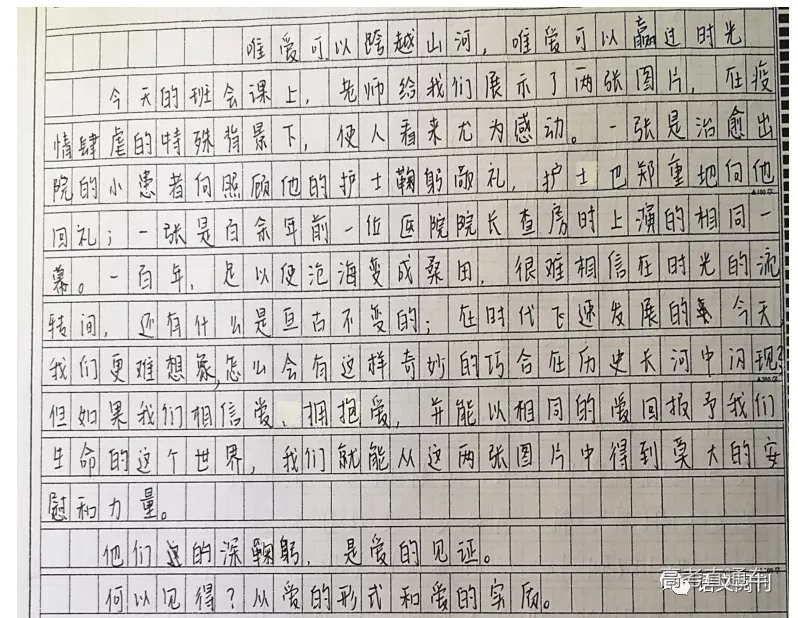 唯爱可以跨越山河，唯爱可以赢过时光
今天的班会课上，老师给我们展示了两张图片，在疫
情肆虐的特殊背景下，使人看来尤为感动。一张是治愈出
院的小患者向照顾他的护士鞠躬敬礼，护士也郑重地向他
回礼；一张是百余年前一位医院院长查房时上演的相同一
幕。一百年，足以使沧海变成桑田，很难相信在时光的流
转间，还有什么是亘古不变的；在时代飞速发展的今天，
我们更难想象，怎么会有这样奇妙的巧合在历史长河中闪现？
但如果我们相信爱、拥抱爱，并能以相同的爱回报予我们
生命的这个世界，我们就能从这两张图片中得到莫大的安
慰和力量。
他们的深鞠躬，是爱的见证。
何以见得？从爱的形式和爱的实质。
高考直通车
语文周刊